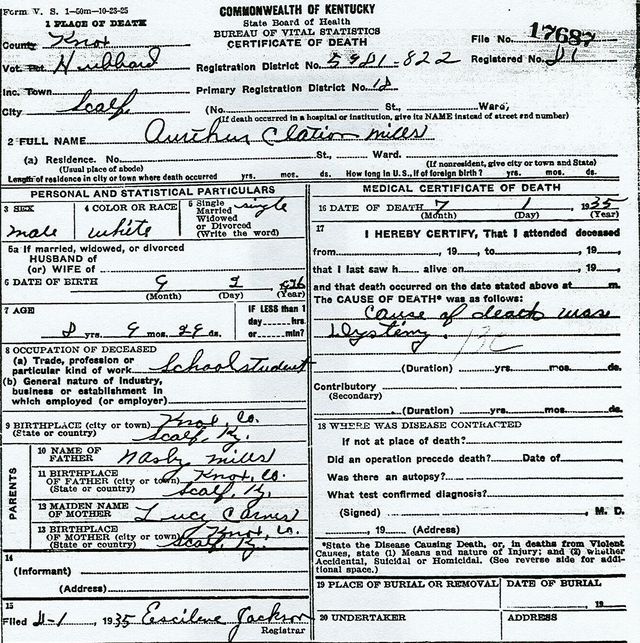 Form V. S. 1-50m-10-23-25
COMMONWEALTH OF KENTUCKY
State Board of Health
BUREAU OF VITAL STATISTICS
CERTIFICATE OF DEATH
1 PLACE OF DEATH
County Knox
Vot. Pct Hubbard
Inc. Town
City Scalf
File No. 17687
Registered No.
Registration District No. 822
Primary Registration District No.
(No. St., Ward,
(If death occurred in a hospital or institution, give its NAME instead of street and number)
2 FULL NAME Aurthur Clation Mills
(a) Residence. No. St., Ward.
(Usual place of abode) (If nonresident, give city or town and State)
Length of residence in city or town where death occurred yrs. mos. ds. How long in U.S., if of foreign birth? yrs. mos. ds.
PERSONAL AND STATISTICAL PARTICULARS
3 SEX
male
4 COLOR OR RACE
white
5 Single
Married
Widowed
or Divorced
(Write the word)
single
5a If married, widowed, or divorced
HUSBAND of
(or) WIFE of
6 DATE OF BIRTH 9 2
(Month) (Day) (Year)
7 AGE
8 yrs. 9 mos. 29 ds.
IF LESS than 1
day hrs.
or min?
8 OCCUPATION OF DECEASED
(a) Trade, profession or
particular kind of work School student
(b) General nature of industry,
business or establishment in
which employed (or employer)
9 BIRTHPLACE (city or town) Knox Co.
(State or country) Scalf, Ky.
PARENTS
10 NAME OF
FATHER Nasby Mills
11 BIRTHPLACE
OF FATHER (city or town) Knox, Co.
(State or country) Scalf, Ky.
12 MAIDEN NAME
OF MOTHER Lucy Carnes
13 BIRTHPLACE
OF MOTHER (city or town) Knox, Co.
(State or country) Scalf, Ky.
14
(Informant)
(Address)
15
Filed 1935 Jackson
Registrar
MEDICAL CERTIFICATE OF DEATH
16 DATE OF DEATH 7 1 1935
(Month) (Day) (Year)
17
I HEREBY CERTIFY, That I attended deceased
from , 19 , to , 19 ,
that I last saw h alive on , 19 ,
and that death occurred on the date stated above at m.
The CAUSE OF DEATH* was as follows:
Cause of death was
(Duration) yrs. mos. ds.
Contributory
(Secondary)
(Duration) yrs. mos. ds.
18 WHERE WAS DISEASE CONTRACTED
If not at place of death?
Did an operation precede death? Date of
Was there an autopsy?
What test confirmed diagnosis?
(Signed) , M. D.
, 19 (Address)
*State the Disease Causing Death, or, in deaths from Violent
Causes, state (1) Means and nature of Injury; and (2) whether
Accidental, Suicidal or Homicidal. (See reverse side for addi-
tional space.)
19 PLACE OF BURIAL OR REMOVAL
DATE OF BURIAL
, 19
20 UNDERTAKER
ADDRESS